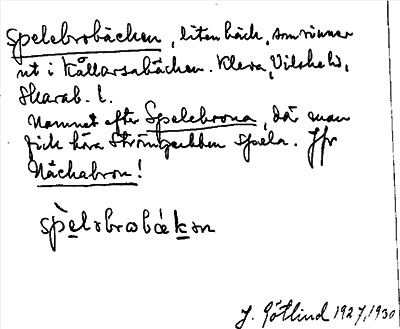 Spelebrobäcken, liten bäck, som rinner
ut i Källarsabäcken. Kleva, Vilske hd,
Skarab. l.
Namnet efter Spelebrona, där man
fick höra Strömgubben spela. Jfr
Näckabron!
spèləbrobækən
J. Götlind 1927, 1930